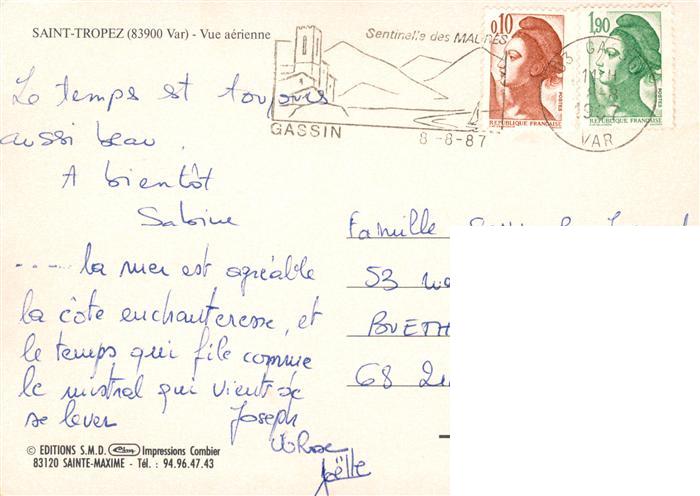 SAINT-TROPEZ (83900 Var) - Vue aérienne
Sentinelle des MAURES
0,10
1,90
POSTES
REPUBLIQUE FRANÇAISE
POSTES
REPUBLIQUE FRANÇAISE
GASSIN
8-8-87
VAR
Le temps est toujours
aussi beau.
A bientôt
Sabine
.... la mer est agréable
la côte enchanteresse, et
le temps qui file comme
le mistral qui vient de
se lever
Joseph
Joëlle
Famille
53
BUETH
68
© EDITIONS S.M.D. Cim Impressions Combier
83120 SAINTE-MAXIME - Tél. : 94.96.47.43